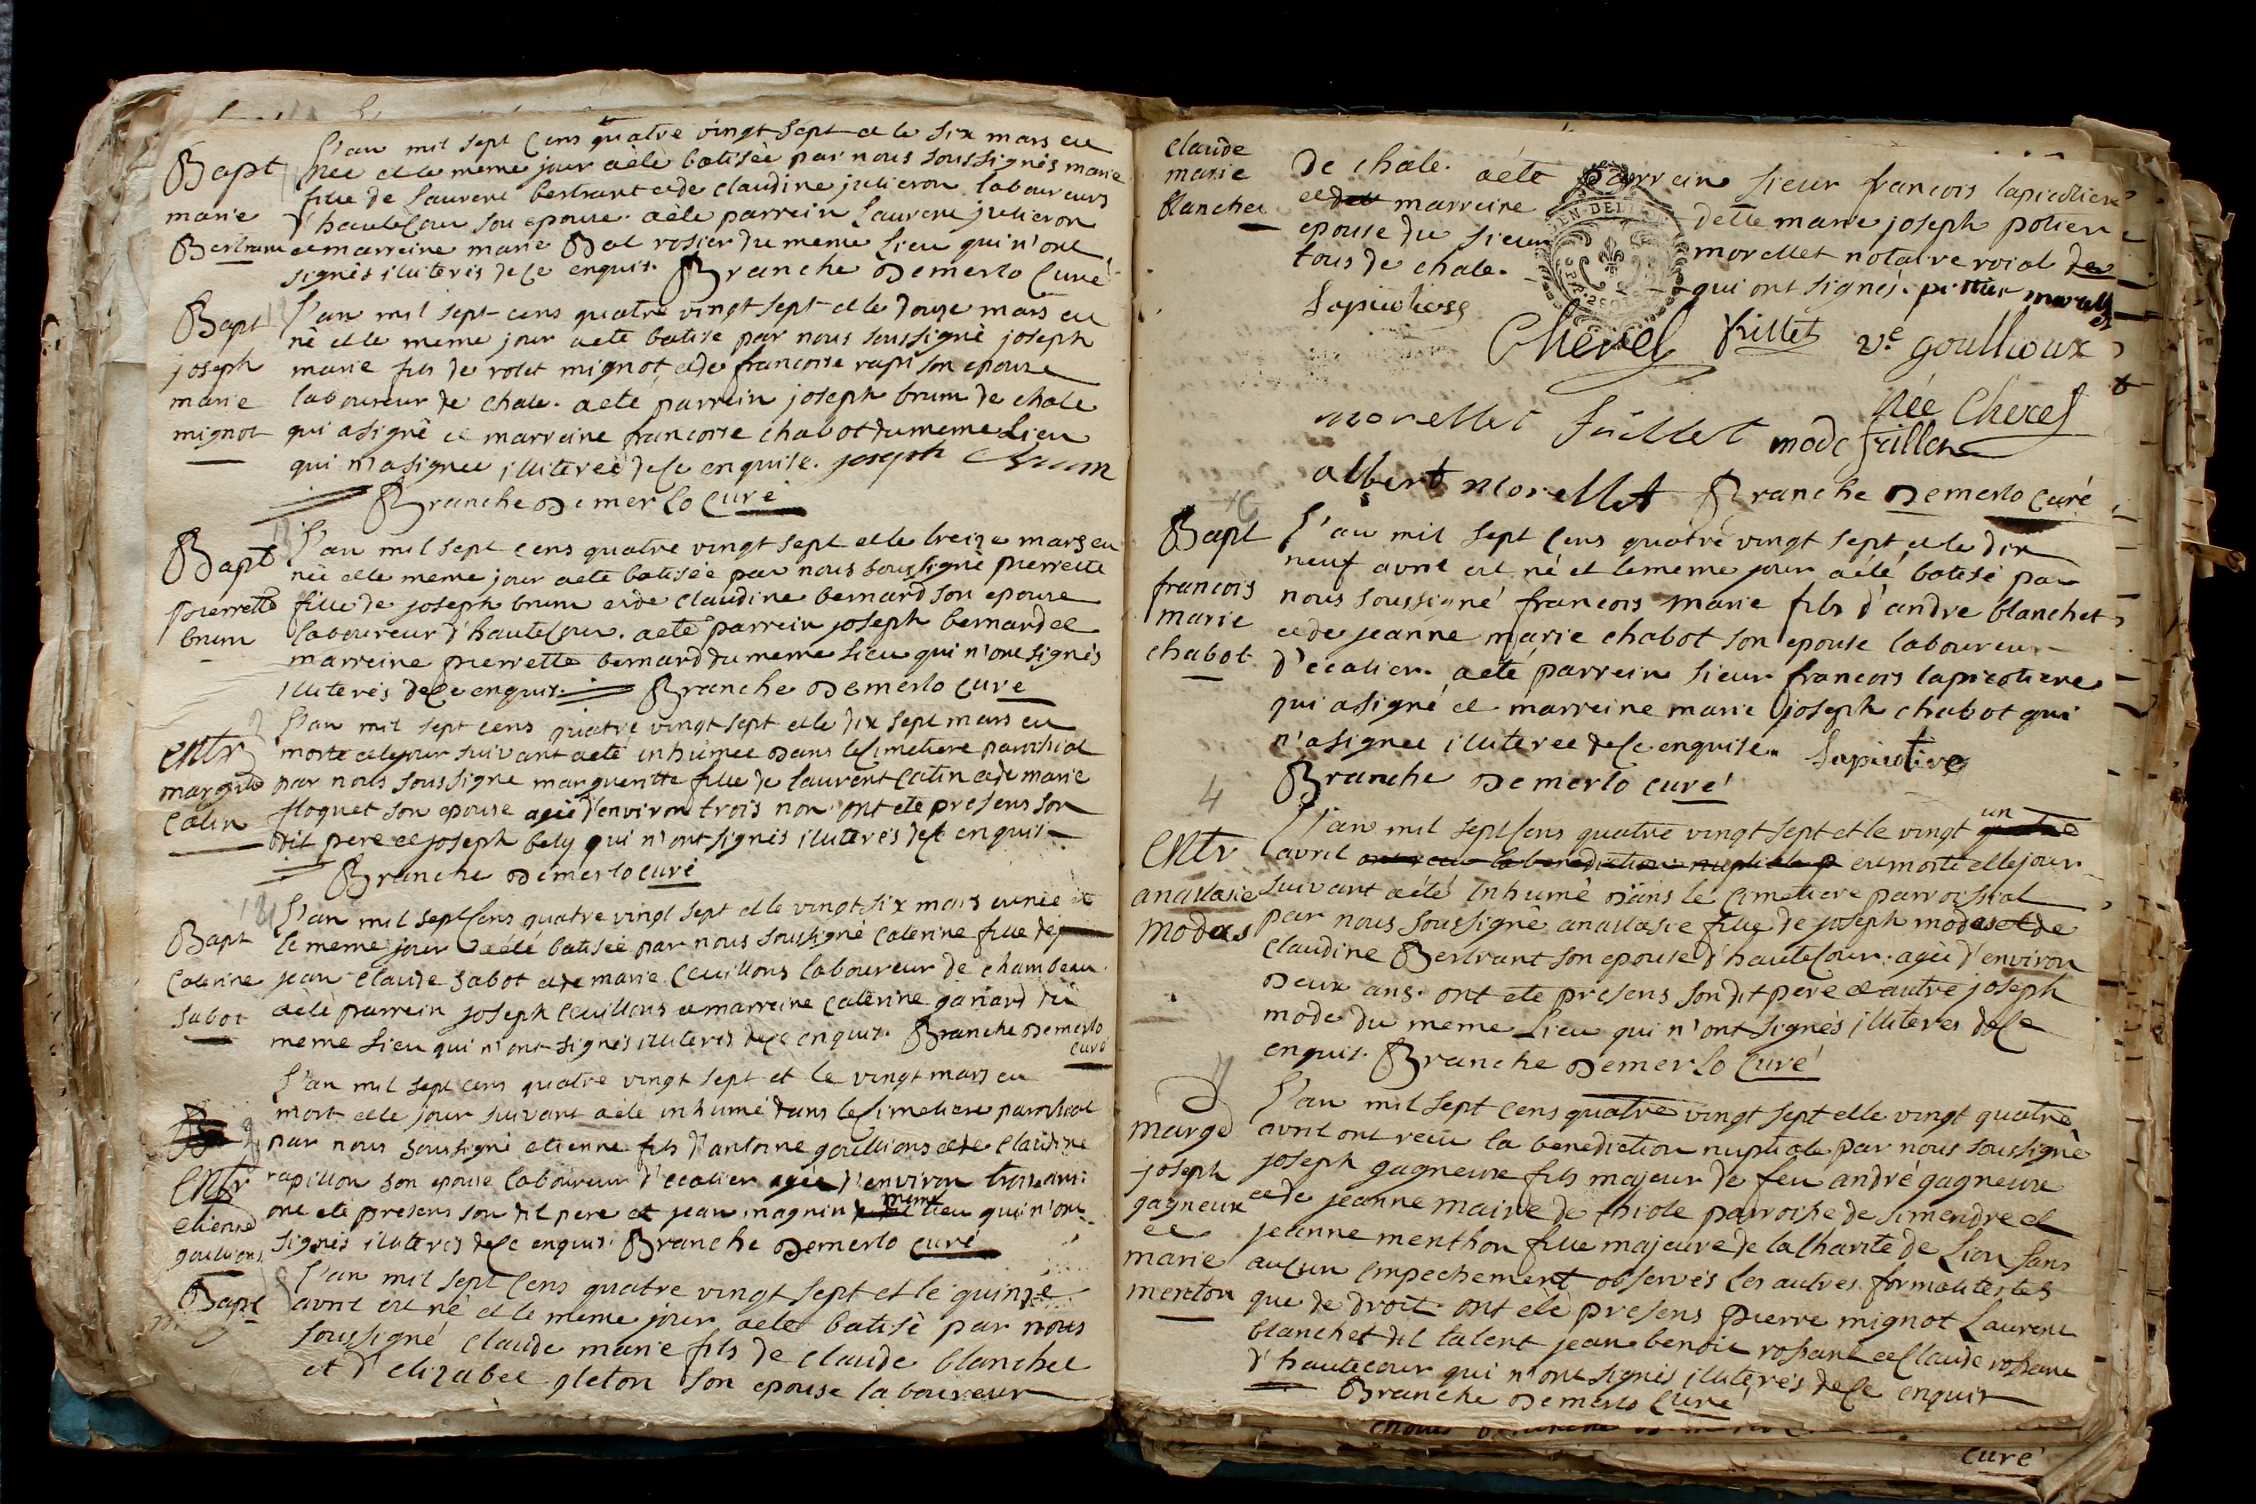 Bapt
marie
Bertrant
L'an mil sept cens quatre vingt sept et le six mars est
née et le meme jour a èté batisèe par nous soussignès marie
fille de laurent bertrant et de claudine julieron laboureurs
d'hautecour son epouse. a èté parrein laurent julieron
et marreine marie Bal rosier du meme lieu qui n'ont
signès illiterès de ce enquis. Branche Demerlo Curé
Bapt
joseph
marie
mignot
L'an mil sept cens quatre vingt sept et le douze mars est
né et le meme jour a eté batisé par nous soussigné joseph
marie fils de rolet mignot et de francoise rapi son epouse
laboureur de chale. a eté parrein joseph brun de chale
qui a signé et marreine francoise chabot du meme lieu
qui n'a signee illiterée de ce enquise. joseph Brun
Branche Demerlo Curé
Bapt
pierrette
brun
L'an mil sept cens quatre vingt sept et le treize mars est
née et le meme jour a eté batisée par nous soussigné pierrette
fille de joseph brun et de claudine bernard son epouse
laboureur d'hautecour. a eté parrein joseph bernard et
marreine pierrette bernard du meme lieu qui n'ont signès
illiterés de ce enquis. Branche Demerlo curé
entr
margritte
Catin
L'an mil sept cens quatre vingt sept et le dix sept mars est
morte et le jour suivant a eté inhumée dans le Cimetiere parroissial
par nous soussigné margueritte fille de laurent Catin et de marie
floquet son epouse agée d'environ trois ont eté presens son
dit pere et joseph bely qui n'ont signès illiterès de ce enquis
Branche Demerlo curé
Bapt
Caterine
sabot
L'an mil sept Cens quatre vingt sept et le vingt six mars est née et
le meme jour a eté batisée par nous soussigné Caterine fille de
jean claude sabot et de marie Cuillons laboureur de chambeau
a èté parrein joseph Cuillons et marreine Caterine ganard du
meme lieu qui n'ont signés illiterés de ce enquis. Branche Demerlo
curé
entr
etienne
goullions
L'an mil sept cens quatre vingt sept et le vingt mars est
mort et le jour suivant a èté inhumé dans le Cimetiere parroissial
par nous soussigné etienne fils d'antoine goullions et de Claudine
rapillon son epouse laboureur d'ecotier agèe d'environ trois ans
ont eté presens son dit pere et jean magnin meme lieu qui n'ont
signès illiterés de ce enquis. Branche Demerlo curé
Bapt
L'an mil sept Cens quatre vingt sept et le quinze
avril est né et le meme jour a eté batisé par nous
soussigné claude marie fils de claude blanchet
et d'elizabet gleton son epouse laboureur
claude
marie
blanchet
de chale. a eté parrein sieur francois lapicotiere
et marreine delle marie joseph potier
epouse du sieur morellet notaire roial de
tous de chale. qui ont signés. pottier morellet
Lapicotiere
Cherel frillet ve. goullioux
née Cherel
morellet frillet mode frillet
albert morellet Branche Demerlo Curé
Bapt
francois
marie
chabot
L'an mil sept Cens quatre vingt sept et le dix
neuf avril est né et le meme jour a été batisé par
nous soussigné francois marie fils d'andre blanchet
et de jeanne marie chabot son epouse laboureur
d'ecotier. a eté parrein sieur francois lapicotiere
qui a signé et marreine marie joseph chabot qui
n'a signee illiteree de ce enquise. Lapicotiere
Branche Demerlo curé
4
entr
anastasie
modas
L'an mil sept Cens quatre vingt sept et le vingt un
avril est morte et le jour
suivant a été inhumé dans le Cimetiere parroissial
par nous soussigné anastasie fille de joseph modas et de
claudine Bertrant son epouse d'hautecour. agée d'environ
deux ans. ont eté presens son dit pere et autre joseph
mode du meme lieu qui n'ont signés illiteres de ce
enquis. Branche Demerlo Curé
marge
joseph
gagneure
et
marie
menton
L'an mil sept cens quatre vingt sept et le vingt quatre
avril ont recu la benediction nuptiale par nous soussigné
joseph gagneure fils majeur de feu andré gagneure
et de jeanne maire de thiole parroisse de simendre et
jeanne menthon fille majeure de la Charite de Lion sans
aucun empechement observés les autres formalites tels
que de droit. ont eté presens pierre mignot Laurent
blanchet dit talent jean benoit rosset et Claude rosset
d'hautecour qui n'ont signés illiterés de ce enquis
Branche Demerlo Curé
curé